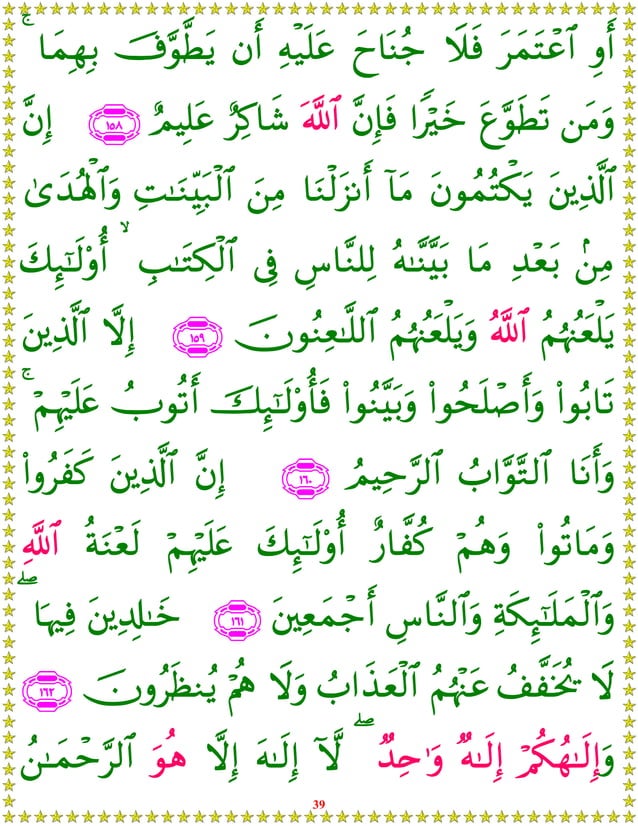 أَوِ ٱعْتَمَرَ فَلَا جُنَاحَ عَلَيْهِ أَن يَطَّوَّفَ بِهِمَا ۚ
وَمَن تَطَوَّعَ خَيْرًا فَإِنَّ ٱللَّهَ شَاكِرٌ عَلِيمٌ ١٥٨ إِنَّ
ٱلَّذِينَ يَكْتُمُونَ مَآ أَنزَلْنَا مِنَ ٱلْبَيِّنَـٰتِ وَٱلْهُدَىٰ
مِنۢ بَعْدِ مَا بَيَّنَّـٰهُ لِلنَّاسِ فِى ٱلْكِتَـٰبِ ۙ أُو۟لَـٰٓئِكَ
يَلْعَنُهُمُ ٱللَّهُ وَيَلْعَنُهُمُ ٱللَّـٰعِنُونَ ١٥٩ إِلَّا ٱلَّذِينَ
تَابُوا۟ وَأَصْلَحُوا۟ وَبَيَّنُوا۟ فَأُو۟لَـٰٓئِكَ أَتُوبُ عَلَيْهِمْ ۚ
وَأَنَا ٱلتَّوَّابُ ٱلرَّحِيمُ ١٦٠ إِنَّ ٱلَّذِينَ كَفَرُوا۟
وَمَاتُوا۟ وَهُمْ كُفَّارٌ أُو۟لَـٰٓئِكَ عَلَيْهِمْ لَعْنَةُ ٱللَّهِ
وَٱلْمَلَـٰٓئِكَةِ وَٱلنَّاسِ أَجْمَعِينَ ١٦١ خَـٰلِدِينَ فِيهَا ۖ
لَا يُخَفَّفُ عَنْهُمُ ٱلْعَذَابُ وَلَا هُمْ يُنظَرُونَ ١٦٢
وَإِلَـٰهُكُمْ إِلَـٰهٌ وَٰحِدٌ ۖ لَّآ إِلَـٰهَ إِلَّا هُوَ ٱلرَّحْمَـٰنُ
39